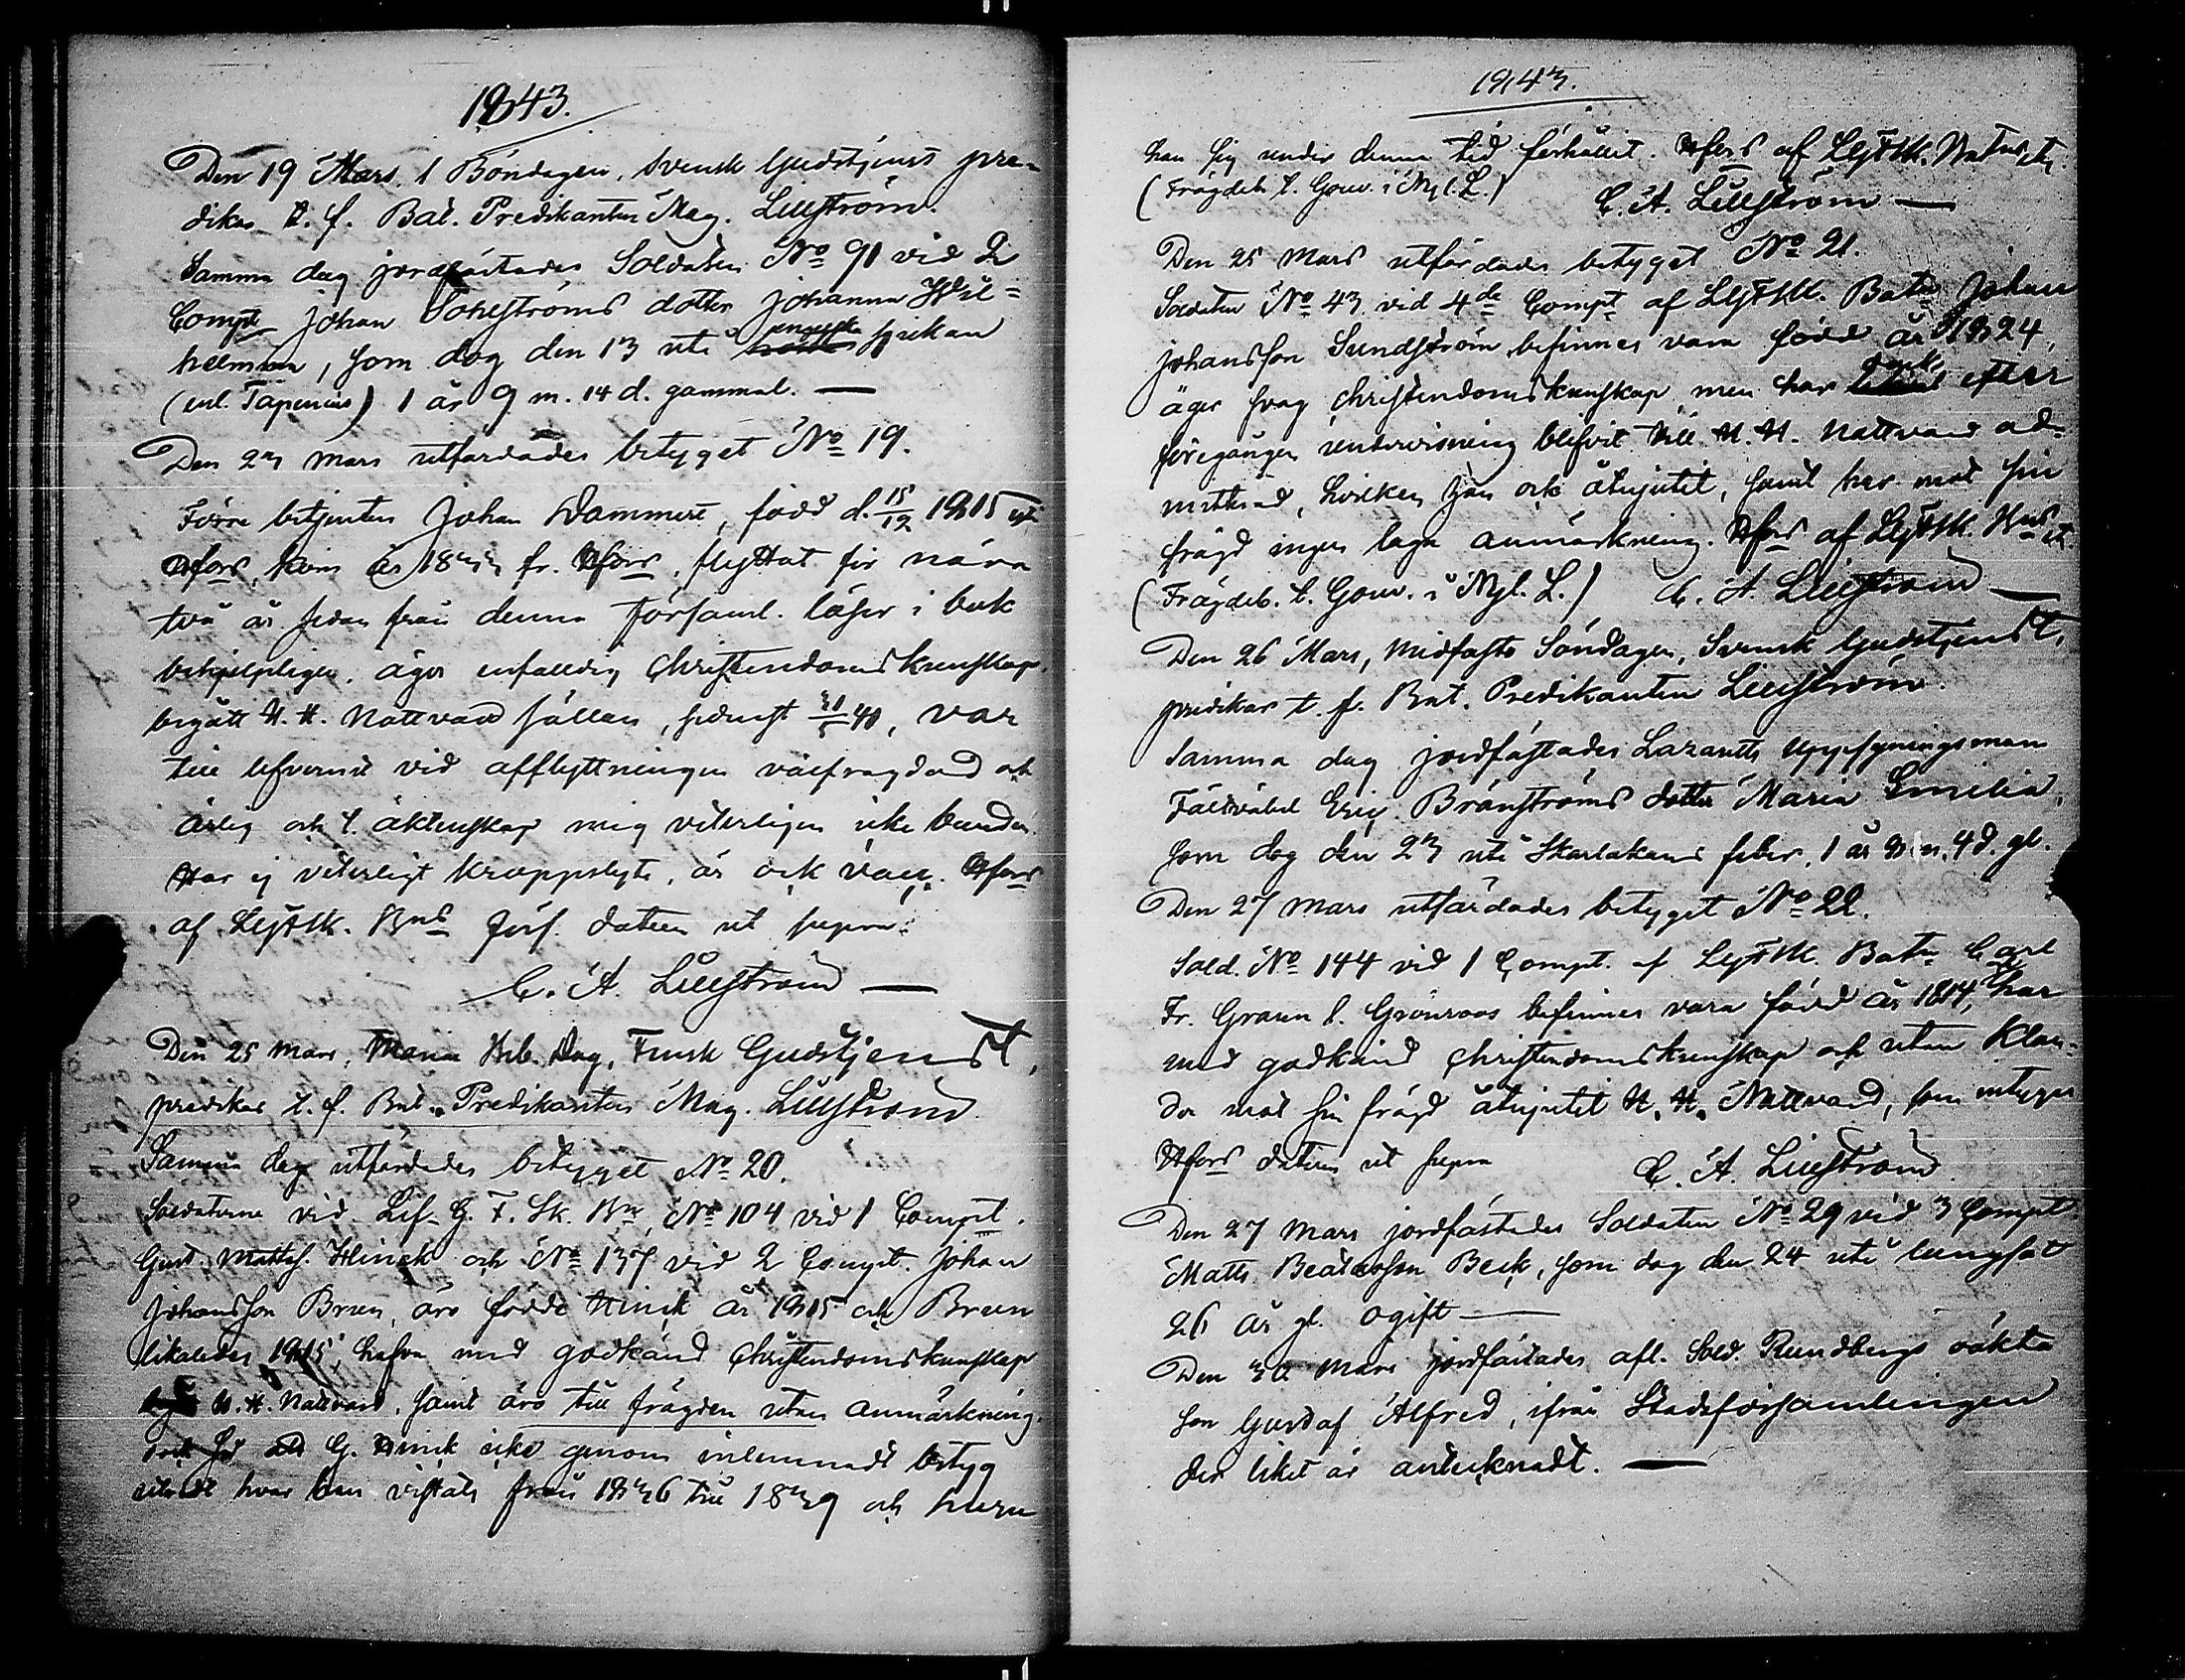 1843.
Den 19 Mars. 1 Böndagen, Svensk Gudstjenst pre-
dikar t. f. Bat. Predikanten Mag. Lilljström.
Samma dag jordfästades Soldaten No 91 vid 2
Compt Johan Söderströms dotter Johanna Wil=
helmina, som dog den 13 uti engelska sjukan
(enl. Tapenius) 1 år 9 m. 14 d. gammal. —
Den 23 Mars utfärdades betyget No 19.
Förre betjenten Johan Dammert, född d. 15/12 1815 uti
Hfors, kom år 1833 fr. Hfors, flyttat för nära
två år sedan från denna Församl. läser i bok
behjelpligen, äger enfalldig Christendomskunskap,
begått H. H. Nattvard sällan, sednast 40, var
till lefverne vid afflyttningen välfrägdad och
ärlig och t. äktenskap mig veterligen icke bunden.
Har ej veterligt kroppslyte, är ock vacc. Hfors
af LGFSk. Bns Förs. datum ut supra.
C. A. Lilljström —
Den 25 Mars, Mariæ Beb. Dag, Finsk Gudstjenst,
predikar t. f. Bat. Predikanten Mag. Lilljström.
Samma dag utfärdades betyget No 20.
Soldaterne vid Lif-G. F. Sk. Bn, No 104 vid 1 Compt.
Gust. Mattss. Hinck och No 137 vid 2 Compt. Johan
Johansson Bruun, äro födde Hinck år 1815 och Bruun
likaledes 1815 hafva med godkänd Christendomskunskap
H. H. Nattvard, samt äro till frägden utan anmärkning.
dock har G. Hinck icke genom inlemnadt betyg
utredt hvar han vistats från 1836 till 1839 och huru
1843.
han sig under denna tid förhållit. Hfors af LGFSk. Bat
(Frägdeb. t. Gouv. i Nyl. L.) C. A. Lilljström —
Den 25 Mars utfärdades betyget No 21.
Soldaten No 43 vid 4de Compt af LGFSk. Batn Johan
Johansson Sundström befinnes vara född år 1824,
äger svag Christendomskunskap men har dock efter
föregången undervisning blifvit till H. H. Nattvard ad-
mitterad, hvilken han ock åtnjutit, samt har mot sin
frägd ingen laga anmärkning. Hfors af LGFSk. Bns
(Frägdeb. t. Gouv. i Nyl. L.) C. A. Lilljström —
Den 26 Mars, Midfasto Söndagen, Svensk Gudstjenst,
predikar t. f. Bat. Predikanten Lilljström.
Samma dag jordfästades Lazaretts uppsyningsman
Fältväbel Eric Brönströms dotter Maria Emilia,
som dog den 23 uti Skarlakans feber, 1 år 8 m. 4 d. gl.
Den 27 Mars utfärdades betyget No 22.
Sold. No 144 vid 1 Compt. af LGFSk. Batn Carl
Fr. Graen l. Grönroos befinnes vara född år 1814, har
med godkänd Christendomskunskap och utan klan-
der mot sin frägd åtnjutit H. H. Nattvard, som intygas
Hfors datum ut supra C. A. Lilljström
Den 27 Mars jordfästades Soldaten No 29 vid 3 Compt
Matts Beck, som dog den 24 uti lungsot
26 år gl. ogift —
Den 30 Mars jordfästades afl. Sold. Rundbergs oäkta
son Gustaf Alfred, ifrån Stadsförsamlingen
der liket är antecknadt. —